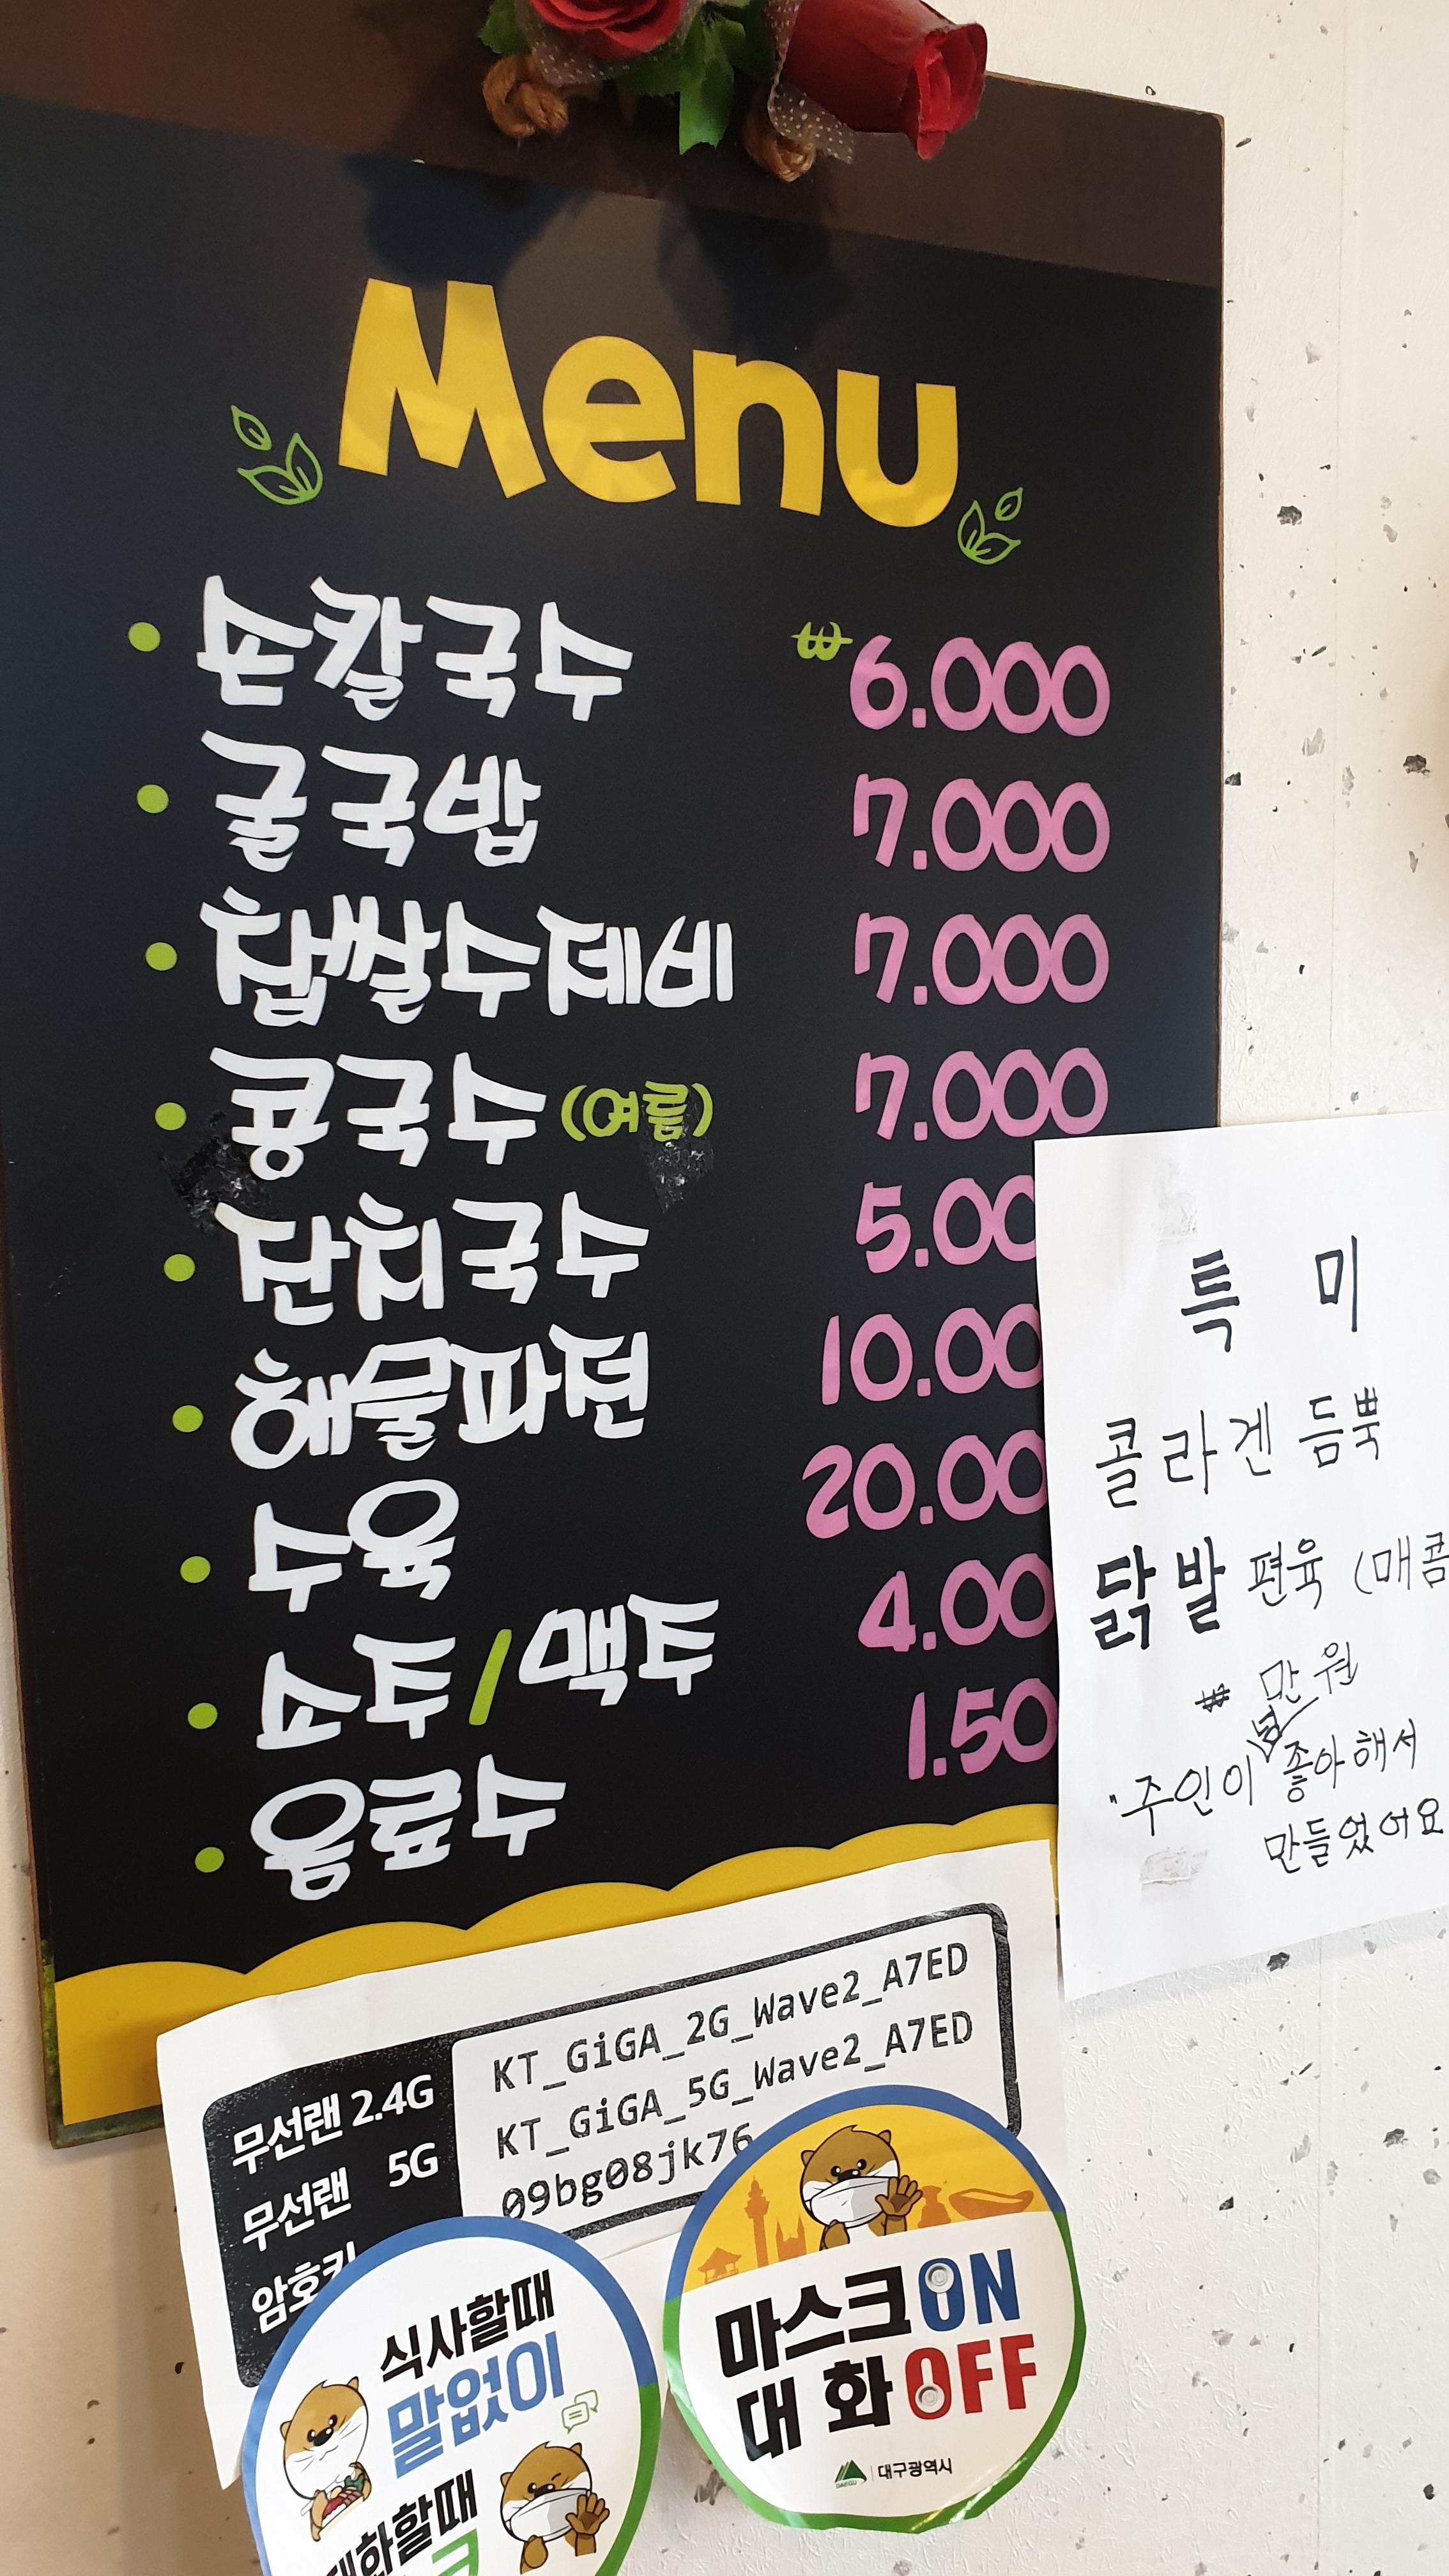 Menu
손칼국수 ₩6.000
굴국밥 7.000
찹쌀수제비 7.000
콩국수 (여름) 7.000
잔치국수 5.00
해물파전 10.00
수육 20.00
소주/맥주 4.00
음료수 1.50
특미
콜라겐 듬뿍
닭발 편육 (매콤
₩ 만원
"주인이 좋아해서
만들었어요
무선랜 2.4G KT_GiGA_2G_Wave2_A7ED
무선랜 5G KT_GiGA_5G_Wave2_A7ED
암호키 09bg08jk76
식사할때
말없이
대화할때
마스크 ON
대화 OFF
DAEGU 대구광역시